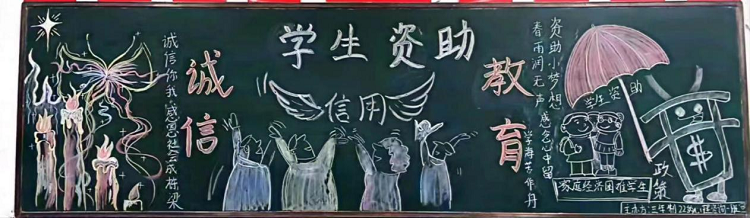 学生资助
诚信
教育
信用
诚信你我感恩社会成栋梁
资助小梦想
春雨润无声感念心中留
学海苦作舟
学生资助
政策
家庭经济困难学生
$